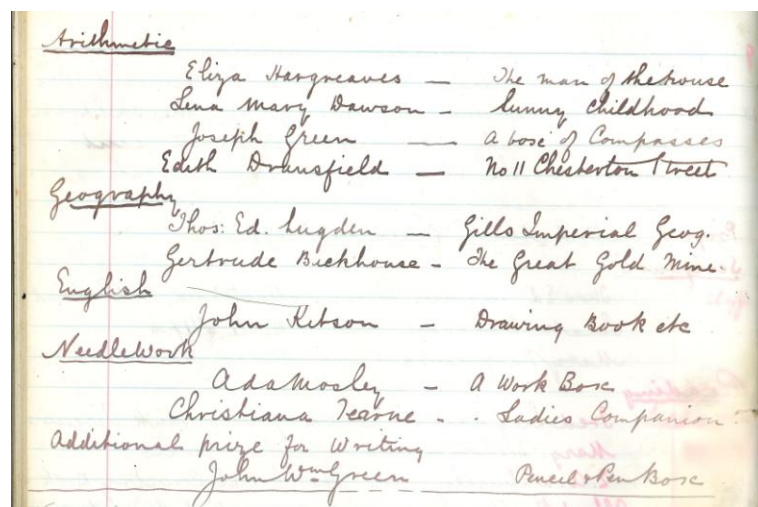 Arithmetic
Eliza Hargreaves — The man of the house
Lena Mary Dawson - Sunny Childhood
Joseph Green — a box of Compasses
Edith Dransfield — No 11 Chesterton Street
Geography
Thos: Ed. Lugden — Gills Imperial Geog.
Gertrude Bickhouse - The Great Gold Mine.
English
John Kitson - Drawing Book etc
NeedleWork
Ada Mosley - A Work Box
Christiana Tearne - . Ladies Companion
Additional prize for Writing
John Wm Green Pencil & Pen Box